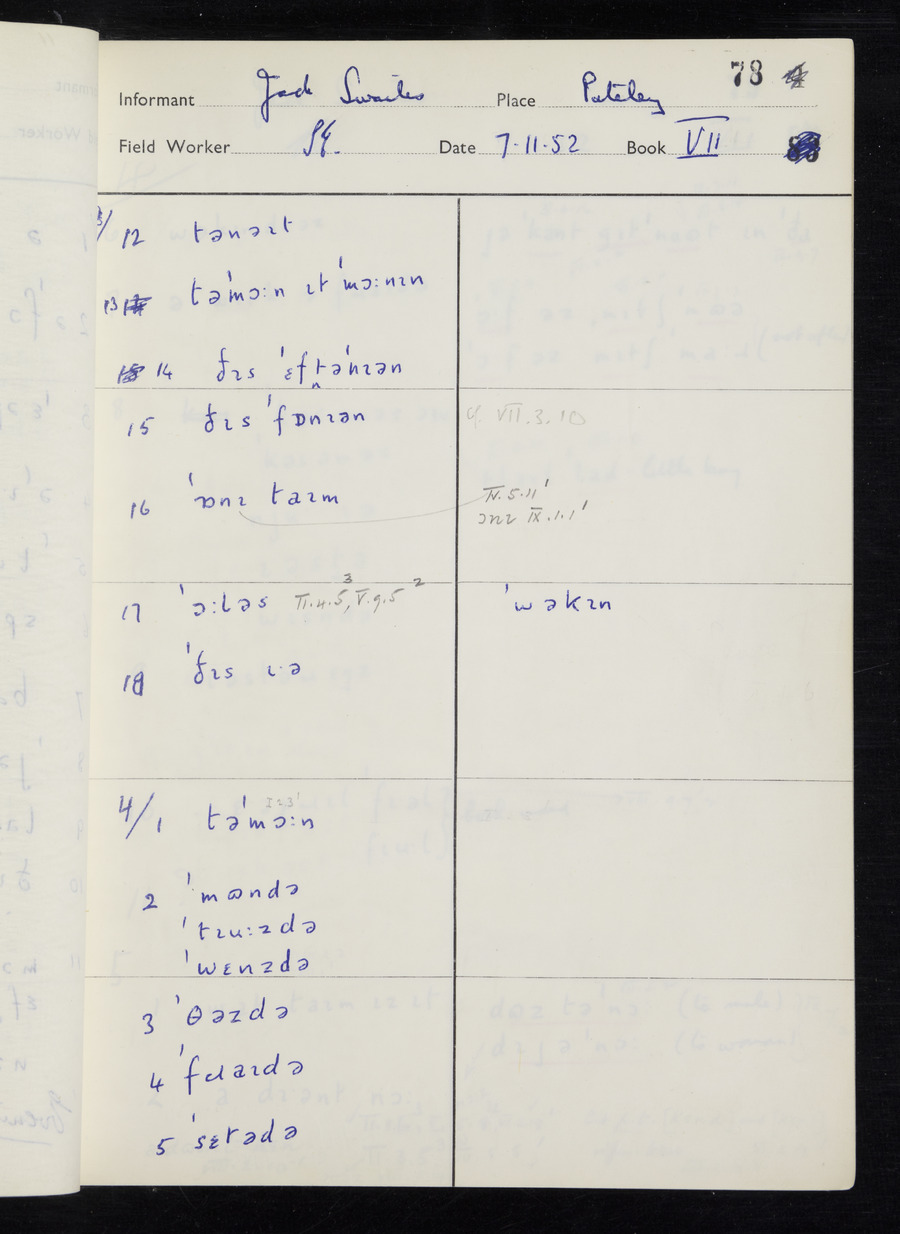 78
Informant Jack Swailes Place Pateley
Field Worker Date 7.11.52 Book VII
3/ 12 tənəɪt
13 təˈmɔ:n ɪt ˈmɔ:nɪn
14 ðɪs ˈɛftəˈnɪən
15 ðɪs ˈfɒnɪən cf. VII.3.10
16 ˈɒnɪ taɪm IV.5.11¹
ɔnɪ IX.1.1¹
17 ˈɔ:ləs II.4.5³, V.9.5² ˈwəkɪn
18 ˈðɪs ɪə
4/1 təˈmɔ:n
2 ˈmɷndə
ˈtɪu:zdə
ˈwɛnzdə
3 ˈθəzdə
4 ˈfɹaɪdə
5 ˈsɛtədə